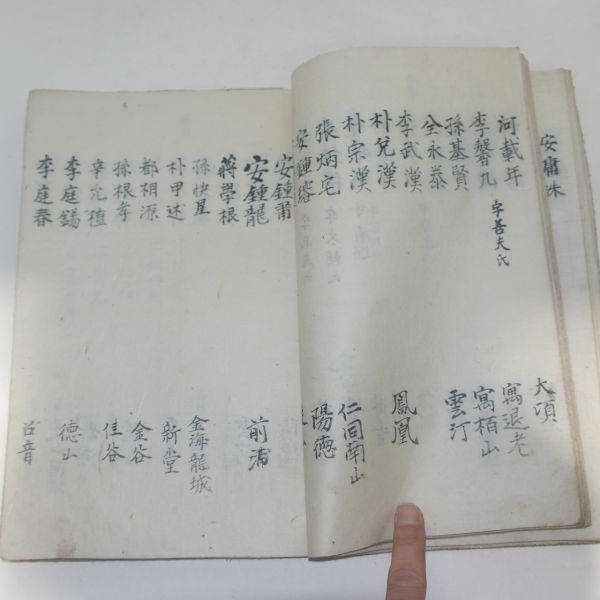 安庸 大項
河載年 寓退老
李馨九 字善夫氏 寓栢山
孫基賢 雲汀
全永泰
李武漢 鳳凰
朴兌漢
朴宗漢 仁同南山
張炳宅 陽德
安鍾
安鍾
安鍾龍 前浦
蔣學根
孫快星 金海龍城
朴甲述 新堂
都相源 金谷
孫根孝 佳谷
辛允植
李庭鍚 德山
李庭春 召音